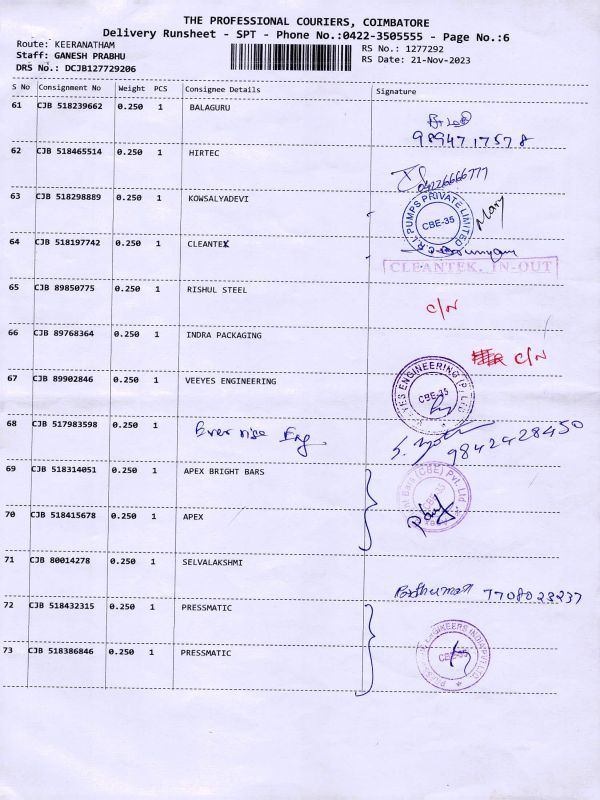 THE PROFESSIONAL COURIERS, COIMBATORE
Delivery Runsheet - SPT - Phone No.:0422-3505555 - Page No.:6
Route: KEERANATHAM
RS No.: 1277292
Staff: GANESH PRABHU
RS Date: 21-Nov-2023
DRS No.: DCJB127729206
S No Consignment No Weight PCS Consignee Details Signature
61 CJB 518239662 0.250 1 BALAGURU
9894717578
62 CJB 518465514 0.250 1 HIRTEC
04226666777
63 CJB 518298889 0.250 1 KOWSALYADEVI
C.R.I. PUMPS PRIVATE LIMITED
CBE-35
Mary
64 CJB 518197742 0.250 1 CLEANTEK
CLEANTEK. IN-OUT
65 CJB 89850775 0.250 1 RISHUL STEEL
C/N
66 CJB 89768364 0.250 1 INDRA PACKAGING
C/N
67 CJB 89902846 0.250 1 VEEYES ENGINEERING
VEEYES ENGINEERING (P) LTD
CBE-35
68 CJB 517983598 0.250 1 Ever rise Eng
9842428450
69 CJB 518314051 0.250 1 APEX BRIGHT BARS
(CBE) Pvt. Ltd
70 CJB 518415678 0.250 1 APEX
71 CJB 80014278 0.250 1 SELVALAKSHMI
7708023237
72 CJB 518432315 0.250 1 PRESSMATIC
CBE-35
73 CJB 518386846 0.250 1 PRESSMATIC